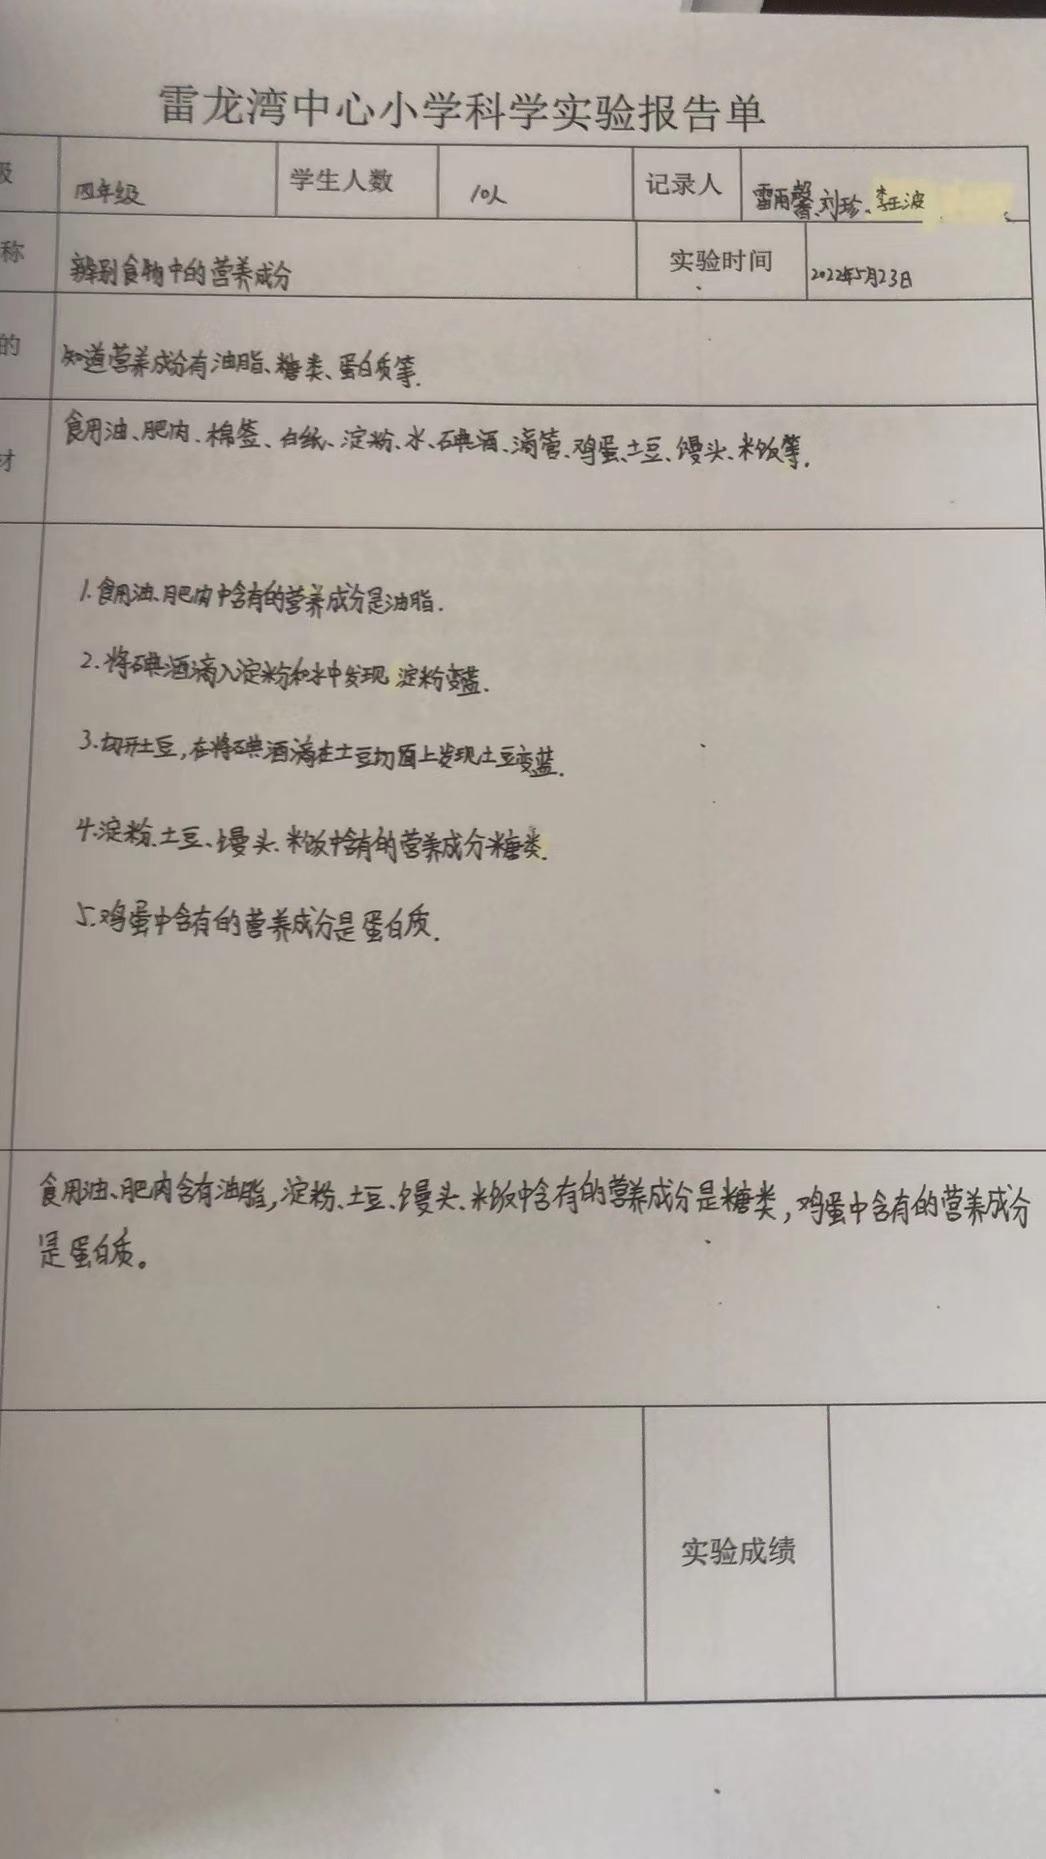 雷龙湾中心小学科学实验报告单
级 四年级 学生人数 10人 记录人 雷雨馨、刘珍、李玉波
称 辨别食物中的营养成分 实验时间 2022年5月23日
的 知道营养成分有油脂、糖类、蛋白质等.
材 食用油、肥肉、棉签、白纸、淀粉、水、碘酒、滴管、鸡蛋、土豆、馒头、米饭等.
1.食用油、肥肉中含有的营养成分是油脂.
2.将碘酒滴入淀粉和水中发现 淀粉变蓝.
3.切开土豆,在将碘酒滴在土豆切面上发现土豆变蓝.
4.淀粉、土豆、馒头、米饭中含有的营养成分糖类.
5.鸡蛋中含有的营养成分是蛋白质.
食用油、肥肉含有油脂,淀粉、土豆、馒头、米饭中含有的营养成分是糖类,鸡蛋中含有的营养成分
是蛋白质。
实验成绩